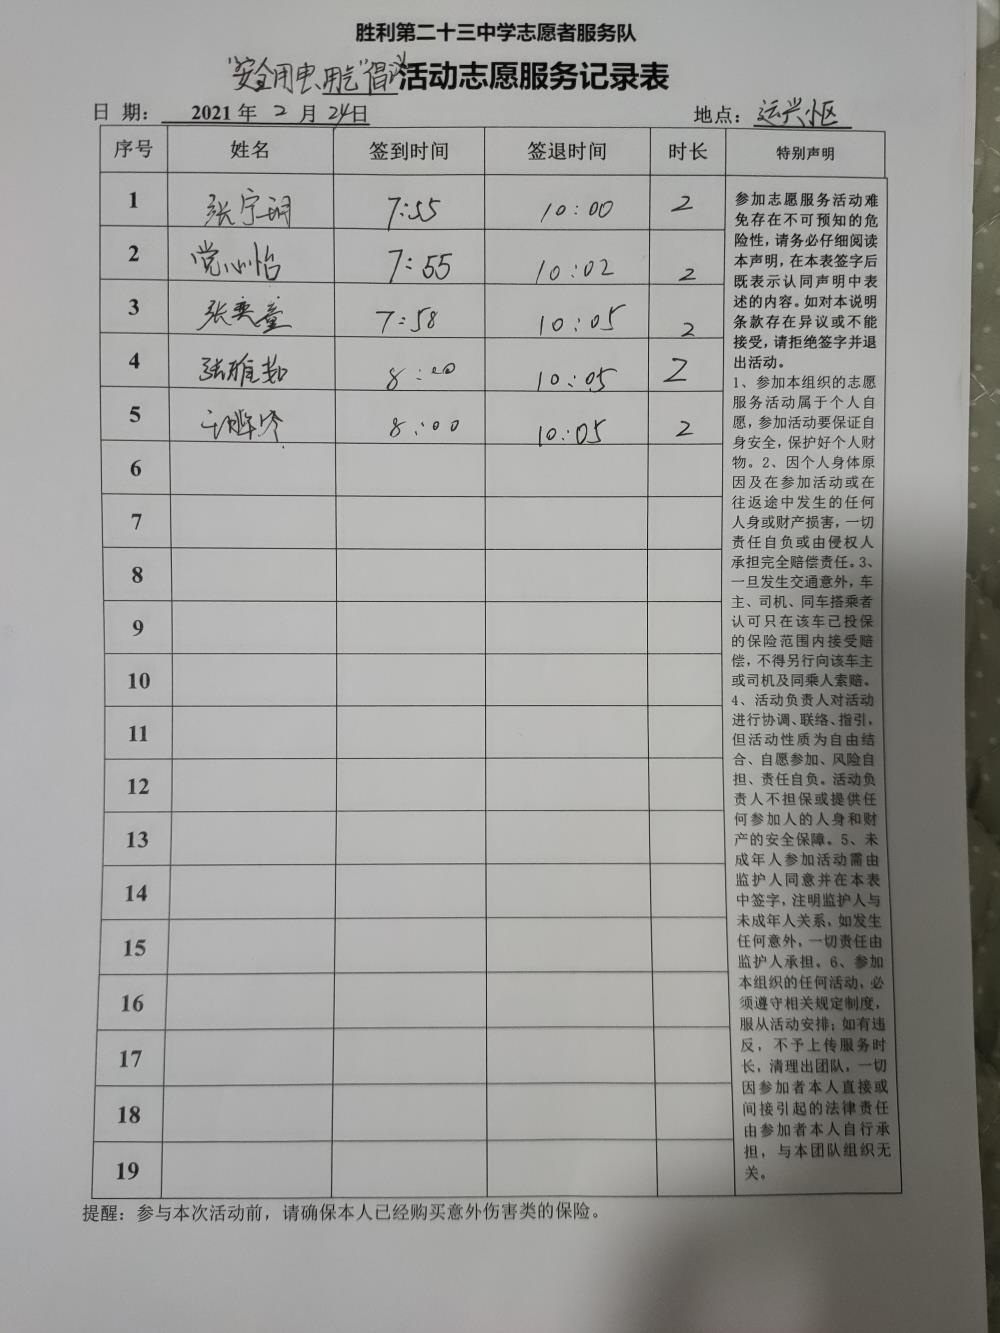 胜利第二十三中学志愿者服务队
"安全用电、用气"倡议活动志愿服务记录表
日 期: 2021 年 2 月 24日 地点: 运兴小区
序号 姓名 签到时间 签退时间 时长 特别声明
1 张宇玥 7:55 10:00 2
2 党心怡 7:55 10:02 2
3 张奕童 7:58 10:05 2
4 8:00 10:05 2
5 8:00 10:05 2
6
7
8
9
10
11
12
13
14
15
16
17
18
19
参加志愿服务活动难
免存在不可预知的危
险性，请务必仔细阅读
本声明，在本表签字后
既表示认同声明中表
述的内容。如对本说明
条款存在异议或不能
接受，请拒绝签字并退
出活动。
1、参加本组织的志愿
服务活动属于个人自
愿，参加活动要保证自
身安全，保护好个人财
物。2、因个人身体原
因及在参加活动或在
往返途中发生的任何
人身或财产损害，一切
责任自负或由侵权人
承担完全赔偿责任。3、
一旦发生交通意外，车
主、司机、同车搭乘者
认可只在该车已投保
的保险范围内接受赔
偿，不得另行向该车主
或司机及同乘人索赔。
4、活动负责人对活动
进行协调、联络、指引，
但活动性质为自由结
合、自愿参加、风险自
担、责任自负。活动负
责人不担保或提供任
何参加人的人身和财
产的安全保障。5、未
成年人参加活动需由
监护人同意并在本表
中签字，注明监护人与
未成年人关系，如发生
任何意外，一切责任由
监护人承担。6、参加
本组织的任何活动，必
须遵守相关规定制度，
服从活动安排；如有违
反，不予上传服务时
长，清理出团队，一切
因参加者本人直接或
间接引起的法律责任
由参加者本人自行承
担，与本团队组织无
关。
提醒：参与本次活动前，请确保本人已经购买意外伤害类的保险。